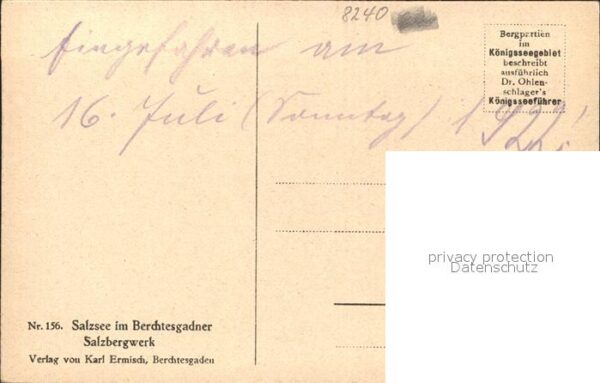 8240
Bergpartien
im
Königsseegebiet
beschreibt
ausführlich
Dr. Ohlen-
schlager's
Königsseeführer
Eingefahren am
16. Juli (Sonntag) 1922.
privacy protection
Datenschutz
Nr. 156. Salzsee im Berchtesgadner
Salzbergwerk
Verlag von Karl Ermisch, Berchtesgaden